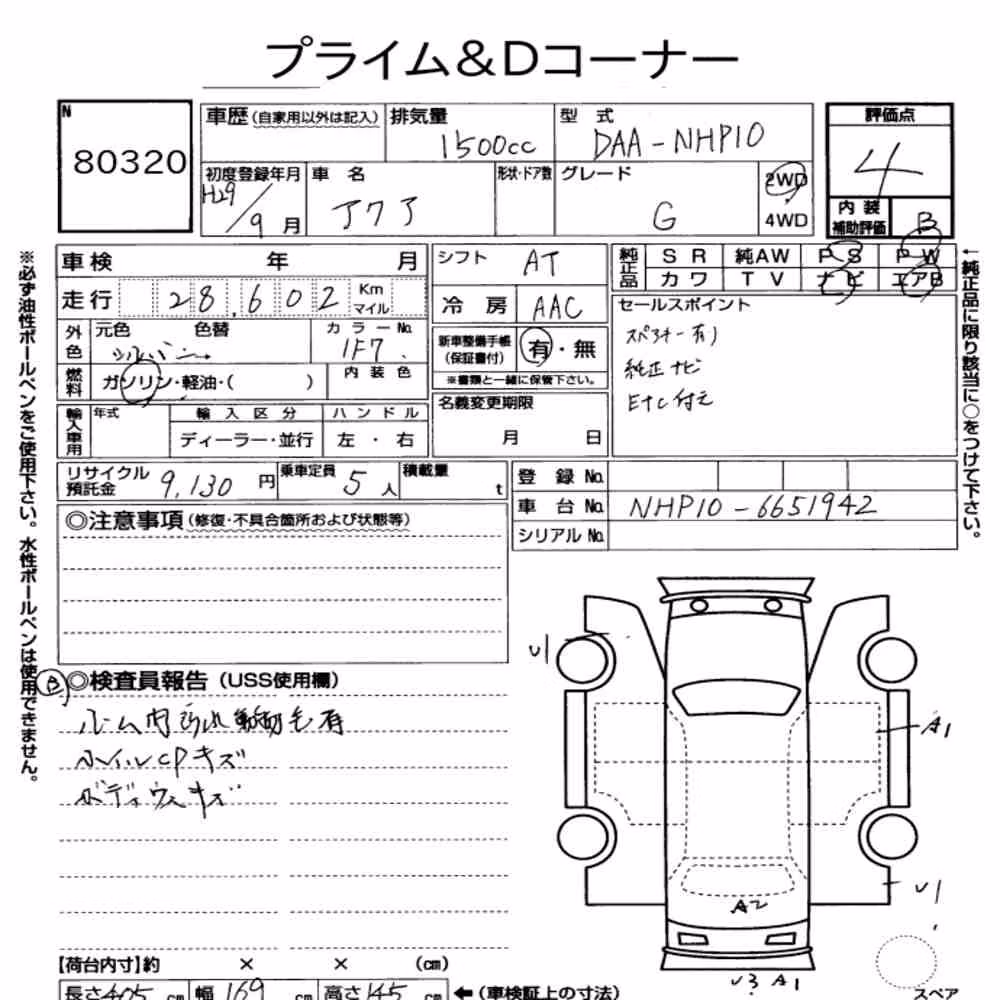 プライム&Dコーナー
N
80320
車歴(自家用以外は記入)
排気量
1500cc
型式
DAA-NHP10
評価点
4
初度登録年月
H29/9月
車名
アクア
形状・ドア数
グレード
G
2WD
4WD
内装
補助評価
B
車検 年 月
シフト
AT
純正品
SR 純AW PS PW
カワ TV ナビ エアB
走行 28,602 Km マイル
冷房
AAC
セールスポイント
スペアキー有り
純正ナビ
ETC付き
外色
元色 色替
シルバー
カラーNo.
1F7
新車整備手帳
(保証書付)
有・無
※書類と一緒に保管下さい。
燃料
ガソリン・軽油・( )
内装色
名義変更期限
月 日
輸入車用
年式
輸入区分
ハンドル
ディーラー・並行
左・右
リサイクル
預託金
9,130円
乗車定員
5人
積載量
t
登録No.
車台No.
NHP10-6651942
シリアルNo.
◎注意事項(修復・不具合箇所および状態等)
※必ず油性ボールペンをご使用下さい。水性ボールペンは使用できません。
←純正品に限り該当に○をつけて下さい。
B
◎検査員報告(USS使用欄)
ルーム内よごれ
有
ホイルCPキズ
ボディウスキズ
U1
A1
U1
A2
U3 A1
スペア
【荷台内寸】約 × × (cm)
長さ405cm 幅169cm 高さ145cm ←(車検証上の寸法)